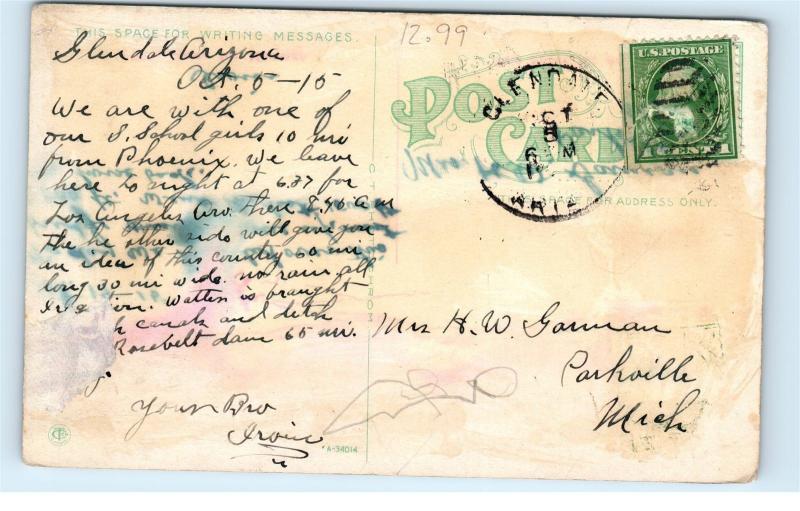 THIS SPACE FOR WRITING MESSAGES.
12.99
Glendale Arizona
Oct. 5-15
We are with one of
our S. School girls 10 mi
from Phoenix. We leave
here to night at 6.37 for
Los Angeles Arv. there 8,40 a m
The other side will give you
an idea of this country 60 mi
long 30 mi wide. no rain, all
Irr tion. Watter is braught
canals and
Rosebelt dam 65 mi.
Your Bro
Irvin
A-34014
POST CARD
GLENDALE
OCT
5
6 M
ARIZ
U.S. POSTAGE
1 CENT
THIS SPACE FOR ADDRESS ONLY.
Mrs H. W. Gorman
Parkville
Mich